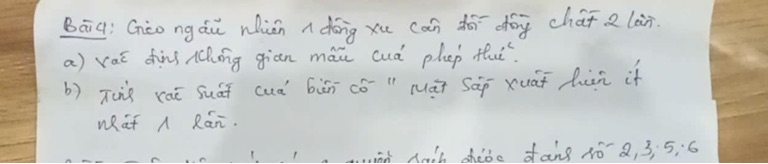 Bài 4: Gieo ngẫu nhiên 1 đồng xu cân đối đồng chất 2 lần.
a) xác định không gian mẫu của phép thử.
b) Tính xác suất của biến cố " Mặt Sấp xuất hiện ít
nhất 1 lần.
số 2, 3, 5, 6